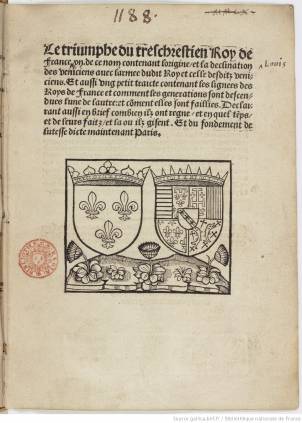 1188.
Le triumphe du treschrestien Roy de
France xii. de ce nom contenant lorigine et la declination
Louis
des Veniciens auec larmee dudit Roy et celle desditz veni-
ciens. Et aussi vng petit traicte contenant les lignees des
Roys de France et comment les generations sont descen-
dues lune de lautre: et cõment elles sont faillies. Decla-
rant aussi en brief combien ilz ont regne/ et en quel tẽps/
et de leurs faitz/ et la ou ilz gisent. Et du fondement de
lutesse dicte maintenant Paris.
Source gallica.bnf.fr / Bibliothèque nationale de France